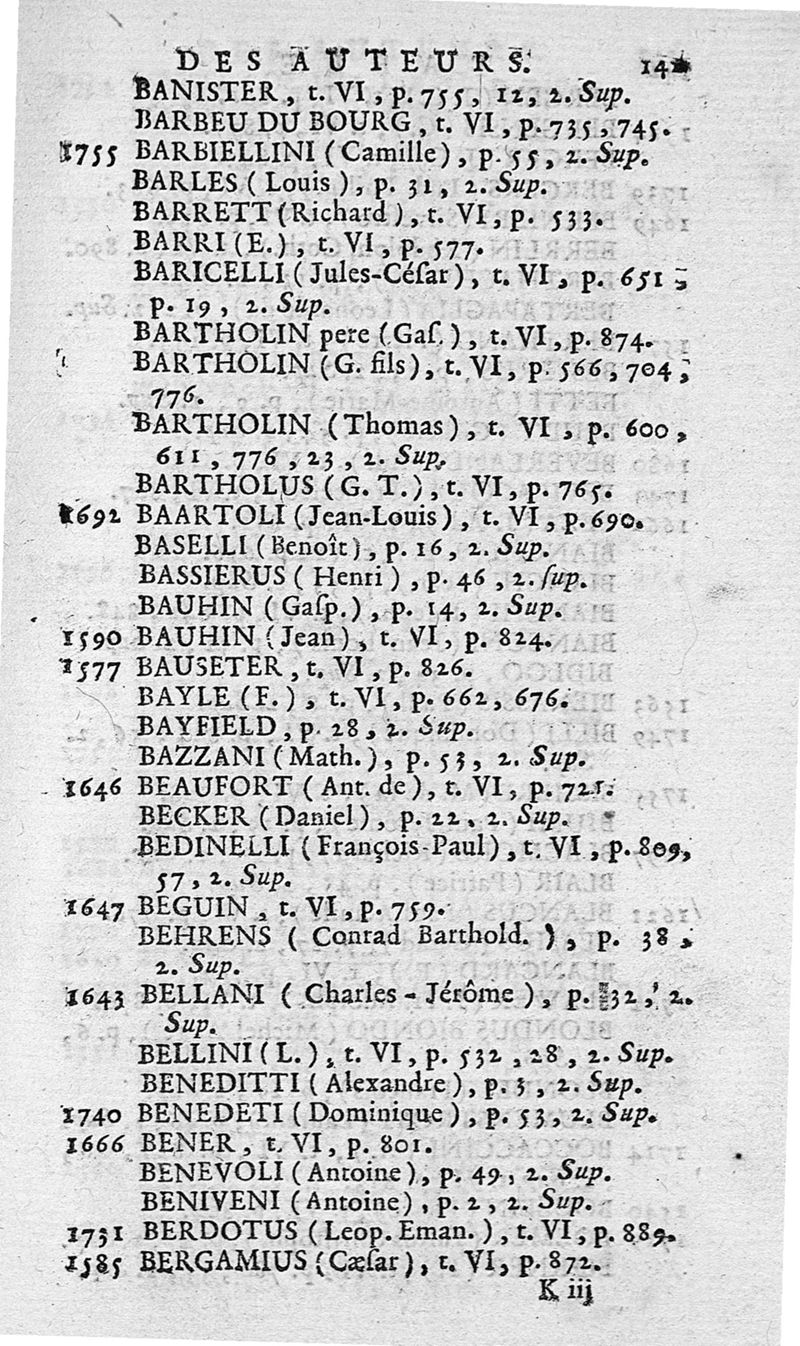 DES AUTEURS.
BANISTER, t. VI, p. 755, 12, 2. Sup.
BARBEU DU BOURG, t. VI, p. 735, 745.
1755 BARBIELLINI (Camille), p. 55, 2. Sup.
BARLES (Louis), p. 31, 2. Sup.
BARRETT (Richard), t. VI, p. 533.
BARRI (E.), t. VI, p. 577.
BARICELLI (Jules-Céſar), t. VI, p. 651;
p. 19, 2. Sup.
BARTHOLIN pere (Gaſ.), t. VI, p. 874.
BARTHOLIN (G. fils), t. VI, p. 566, 704,
776.
BARTHOLIN (Thomas), t. VI, p. 600,
611, 776, 23, 2. Sup.
BARTHOLUS (G. T.), t. VI, p. 765.
1692 BAARTOLI (Jean-Louis), t. VI, p. 690.
BASELLI (Benoît), p. 16, 2. Sup.
BASSIERUS (Henri), p. 46, 2. ſup.
BAUHIN (Gaſp.), p. 14, 2. Sup.
1590 BAUHIN (Jean), t. VI, p. 824.
1577 BAUSETER, t. VI, p. 826.
BAYLE (F.), t. VI, p. 662, 676.
BAYFIELD, p. 28, 2. Sup.
BAZZANI (Math.), p. 53, 2. Sup.
1646 BEAUFORT (Ant. de), t. VI, p. 721.
BECKER (Daniel), p. 22, 2. Sup.
BEDINELLI (François-Paul), t. VI, p. 809,
57, 2. Sup.
1647 BEGUIN, t. VI, p. 759.
BEHRENS (Conrad Barthold.), p. 38,
2. Sup.
1643 BELLANI (Charles-Jérôme), p. 32, 2.
Sup.
BELLINI (L.), t. VI, p. 532, 28, 2. Sup.
BENEDITTI (Alexandre), p. 3, 2. Sup.
1740 BENEDETI (Dominique), p. 53, 2. Sup.
1666 BENER, t. VI, p. 801.
BENEVOLI (Antoine), p. 49, 2. Sup.
BENIVENI (Antoine), p. 2, 2. Sup.
1731 BERDOTUS (Leop. Eman.), t. VI, p. 889.
1585 BERGAMIUS (Cæſar), t. VI, p. 872.
K iij